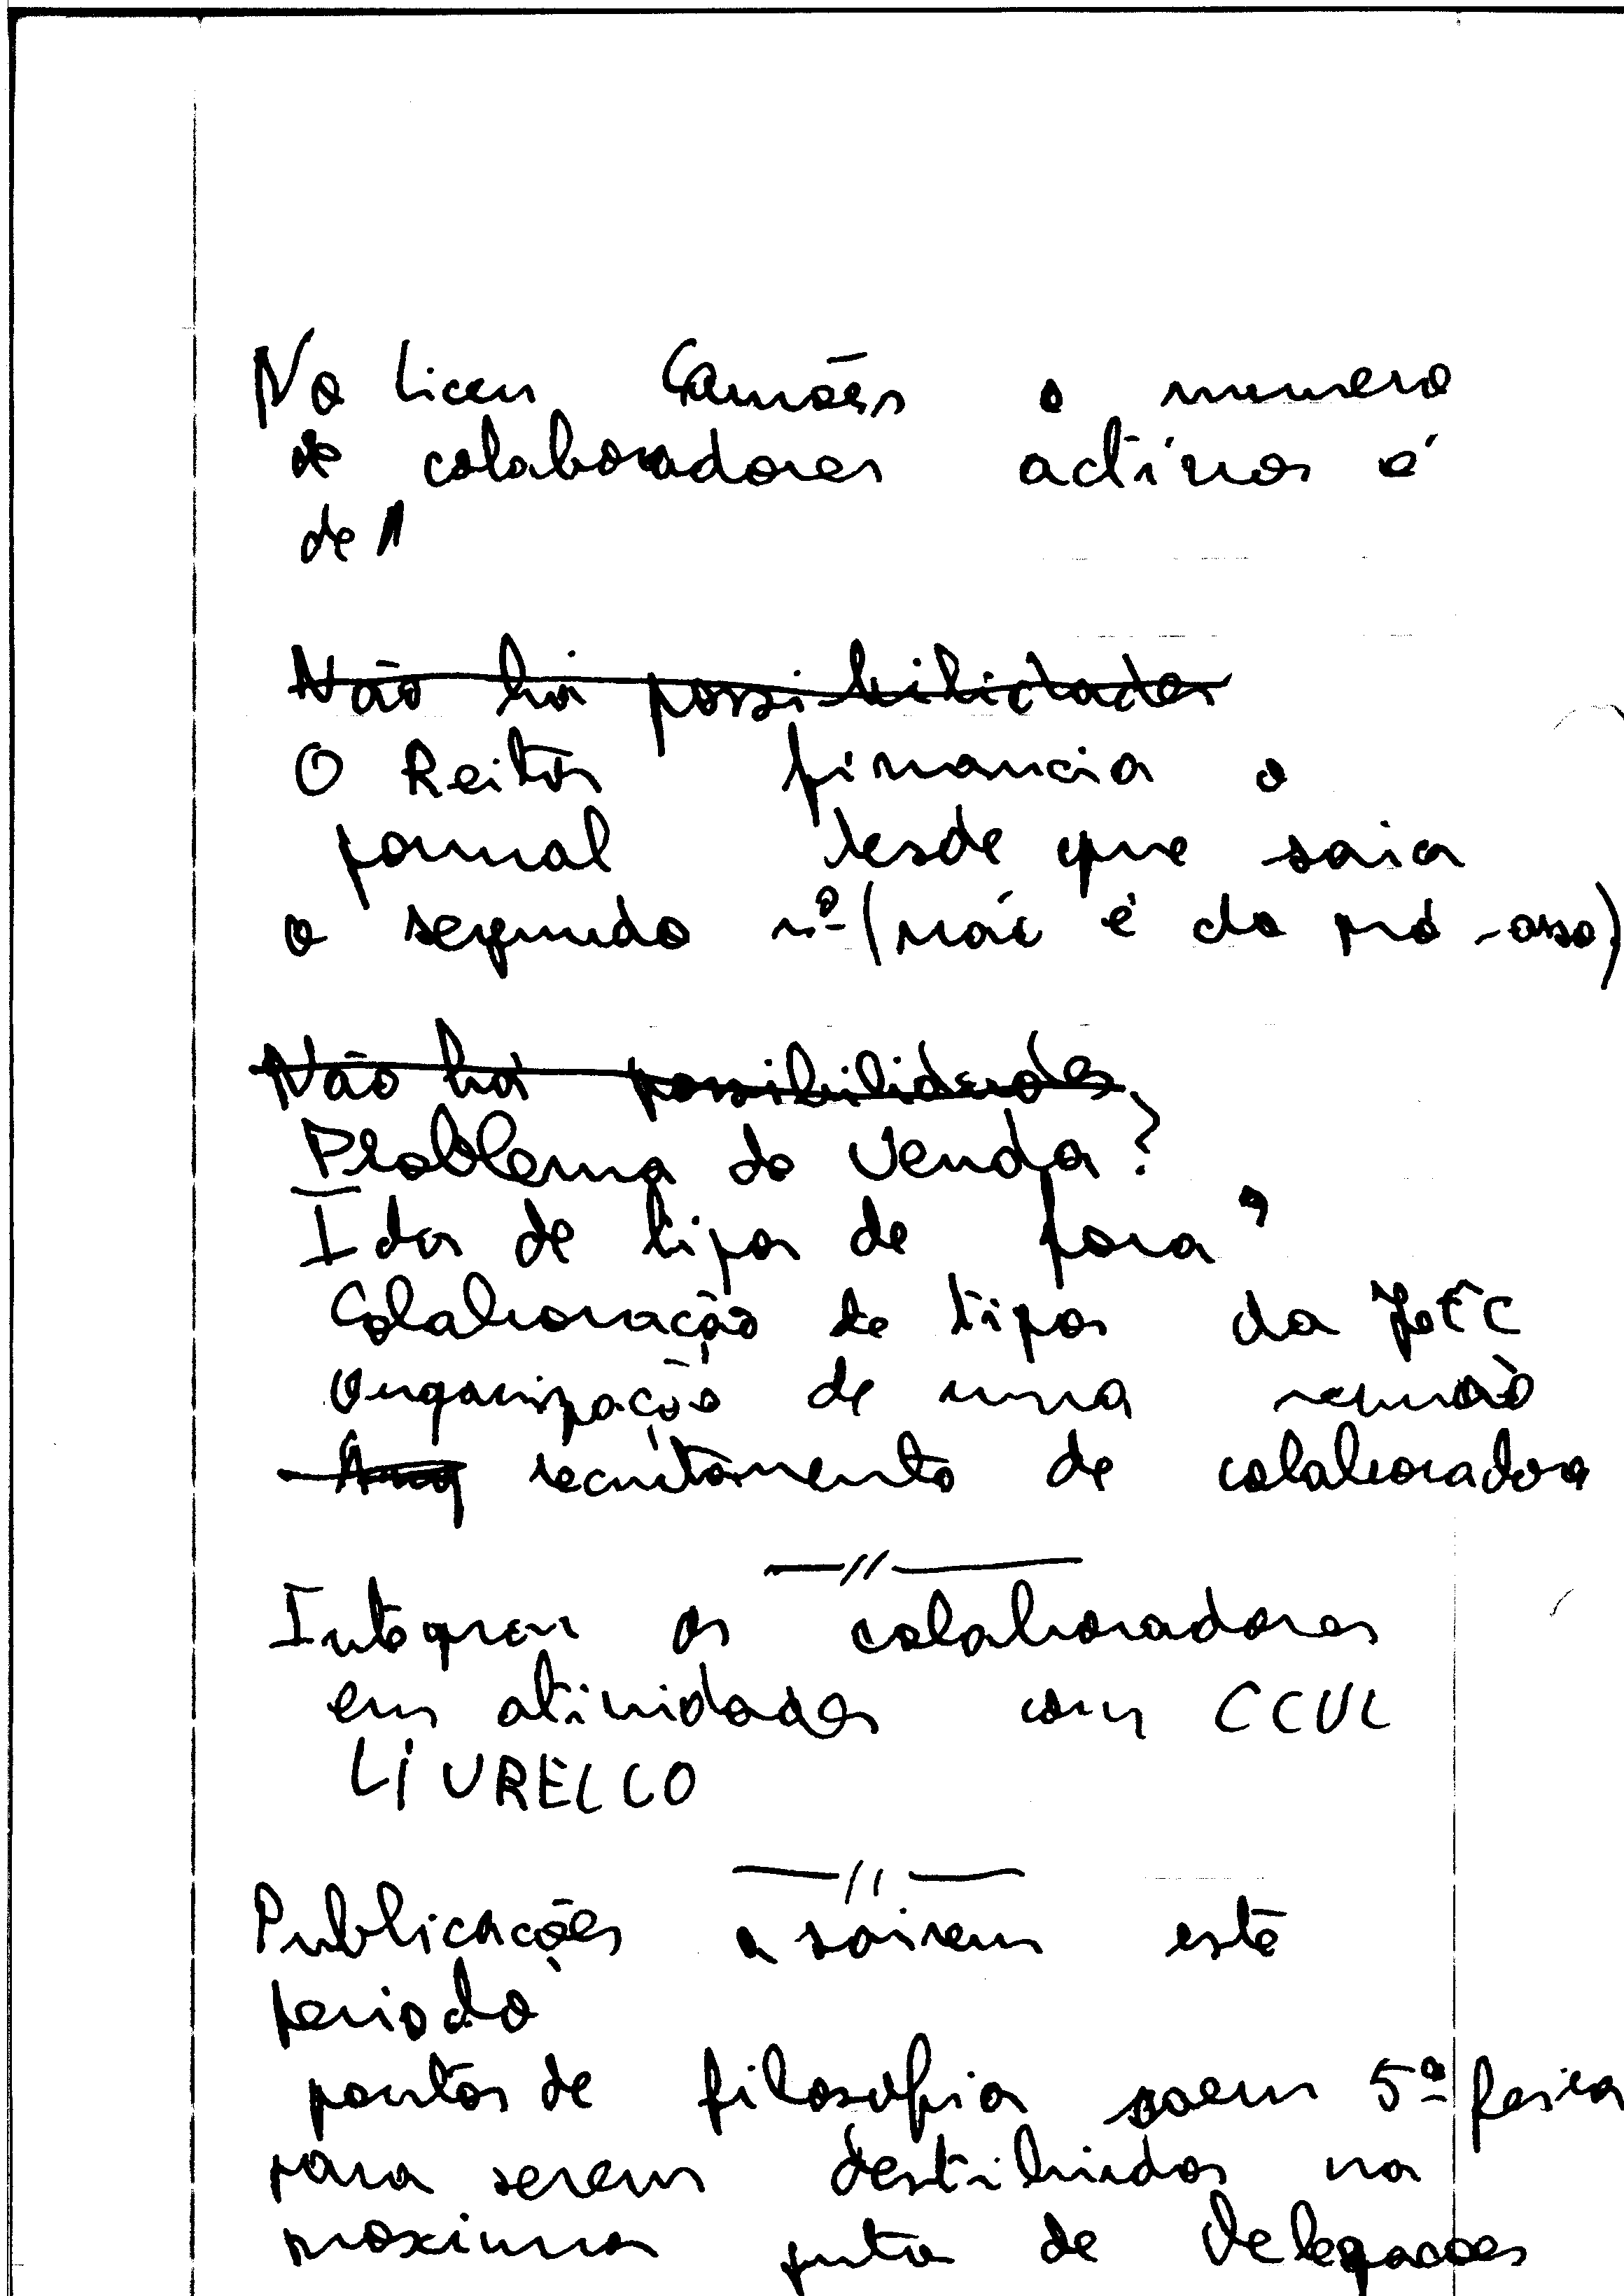 No Liceu Camões o numero
de colaboradores activos é
de 1
Não há possibilidades
O Reitor financia o
jornal desde que saia
o segundo nº (não é da pró-asso)
Não há possibilidades
Problema da venda?
Ida de tipos de fora?
Colaboração de tipos da JEC
Organização de uma reunião
recrutamento de colaboradores
—//—
Integrar os colaboradores
em atividades com CCUL
LIVRELCO
—//—
Publicações a sairem este
periodo
pontos de filosofia saem 5ª feira
para serem destribuidos na
proxima junta de Delegacoes